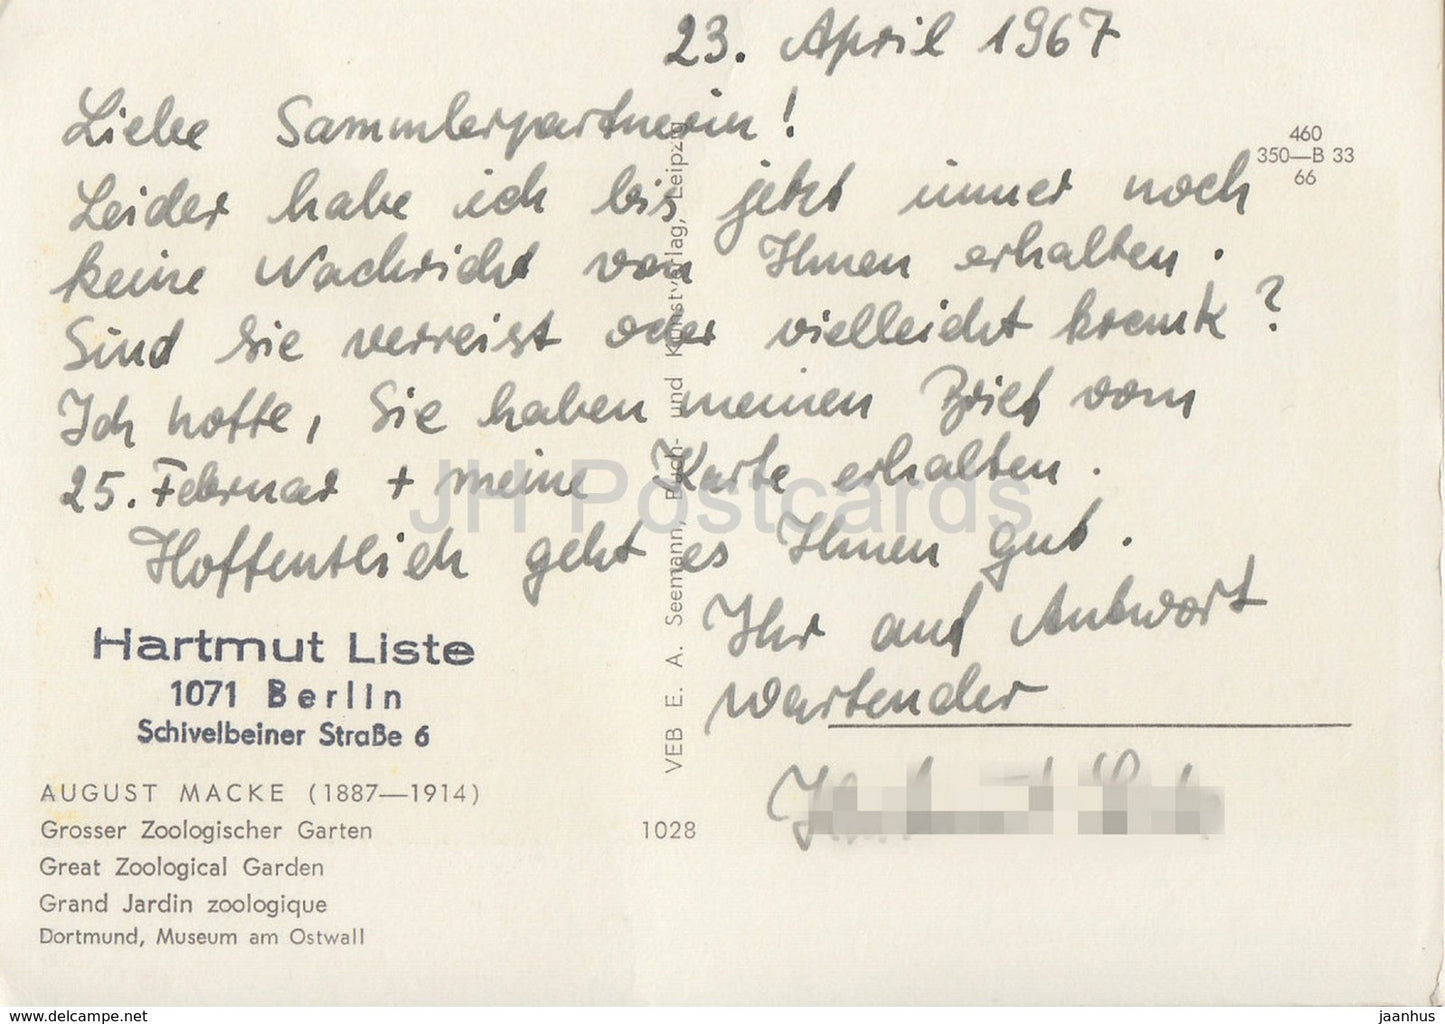 23. April 1967
Liebe Sammlerpartnerin!
Leider habe ich bis jetzt immer noch
keine Nachricht von Ihnen erhalten.
Sind Sie verreist oder vielleicht krank?
Ich hoffe, Sie haben meinen Brief vom
25. Februar + meine Karte erhalten.
Hoffentlich geht es Ihnen gut.
Ihr auf Antwort
wartender
460
350—B 33
66
Hartmut Liste
1071 Berlin
Schivelbeiner Straße 6
AUGUST MACKE (1887—1914)
Grosser Zoologischer Garten
Great Zoological Garden
Grand Jardin zoologique
Dortmund, Museum am Ostwall
VEB E. A. Seemann, Buch- und Kunstverlag, Leipzig
1028
JH Postcards
www.delcampe.net
jaanhus